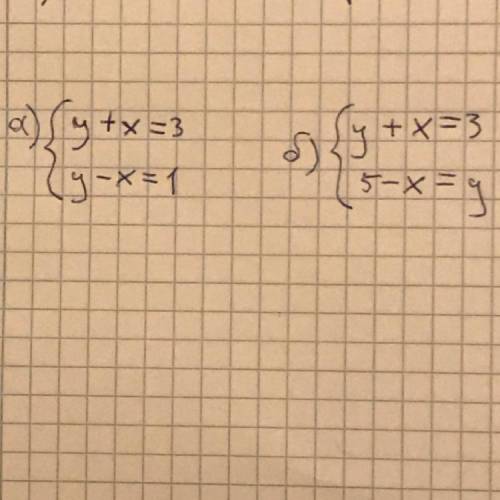 а) { y + x = 3
y - x = 1
б) { y + x = 3
5 - x = y